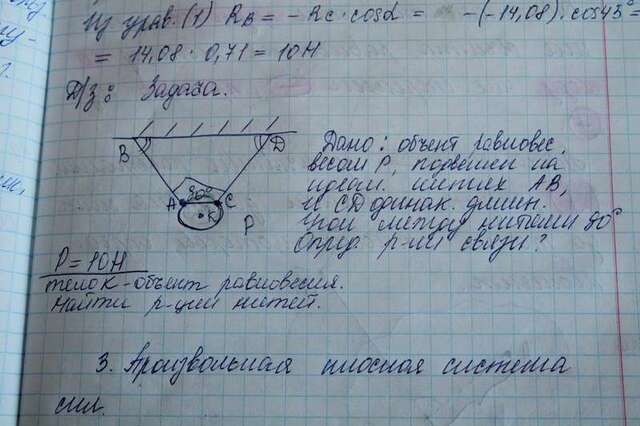 Из урав. (1) RB = -Rc·cosα = -(-14,08)·cos45° =
= 14,08 · 0,71 = 10Н
Д/з: Задача.
B D
A 90° C
K
P
Дано: объект равновес.
весом P, подвешен на
нитях AB,
и CD одинак. длин.
Угол между нитями 90°
Опред. р-ии связи?
P = 10Н
тело K - объект равновесия.
Найти р-ции нитей.
3. Произвольная плоская система
сил.